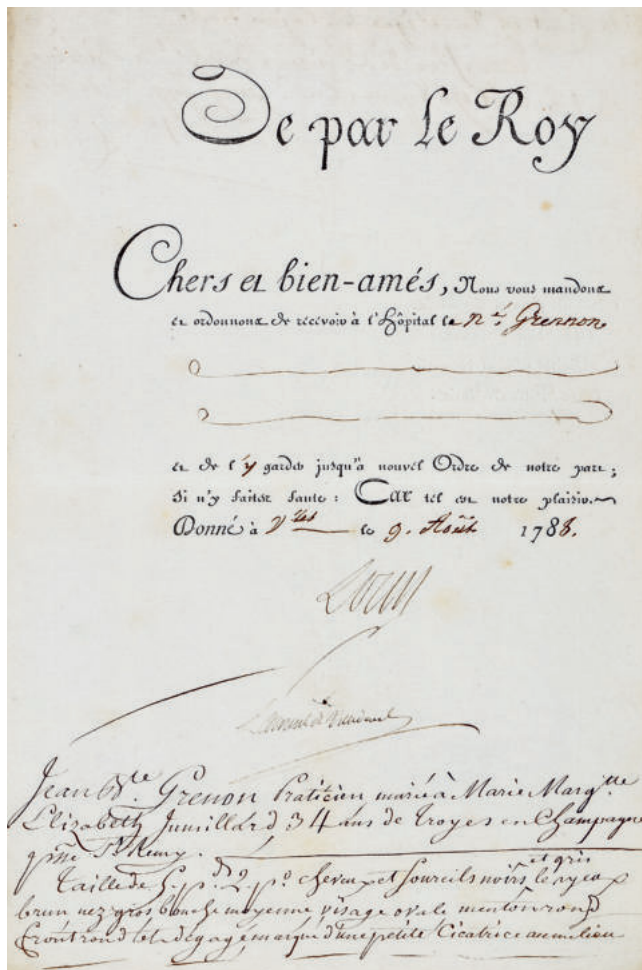 De par le Roy
Chers et bien-amés, Nous vous mandons
et ordonnons de recevoir à l'Hôpital le n.é Grennon
et de l'y garder jusqu'à nouvel Ordre de notre part;
Si n'y faites faute: Car tel est notre plaisir.
Donné à V.les le 9. Août 1788.
Louis
Jean B.te Grenon Praticien marié à Marie Marg.tte
Elizabeth Jumillard 34 ans de Troyes en Champagne
p.sse St Remy.
et gris
Taille de 5. p.ds 2. p.o cheveux et sourcils noirs les yeux
brun nez gros bouche moyenne visage ovale menton rond
front rond et dégagé marqué d'une petite Cicatrice au milieu